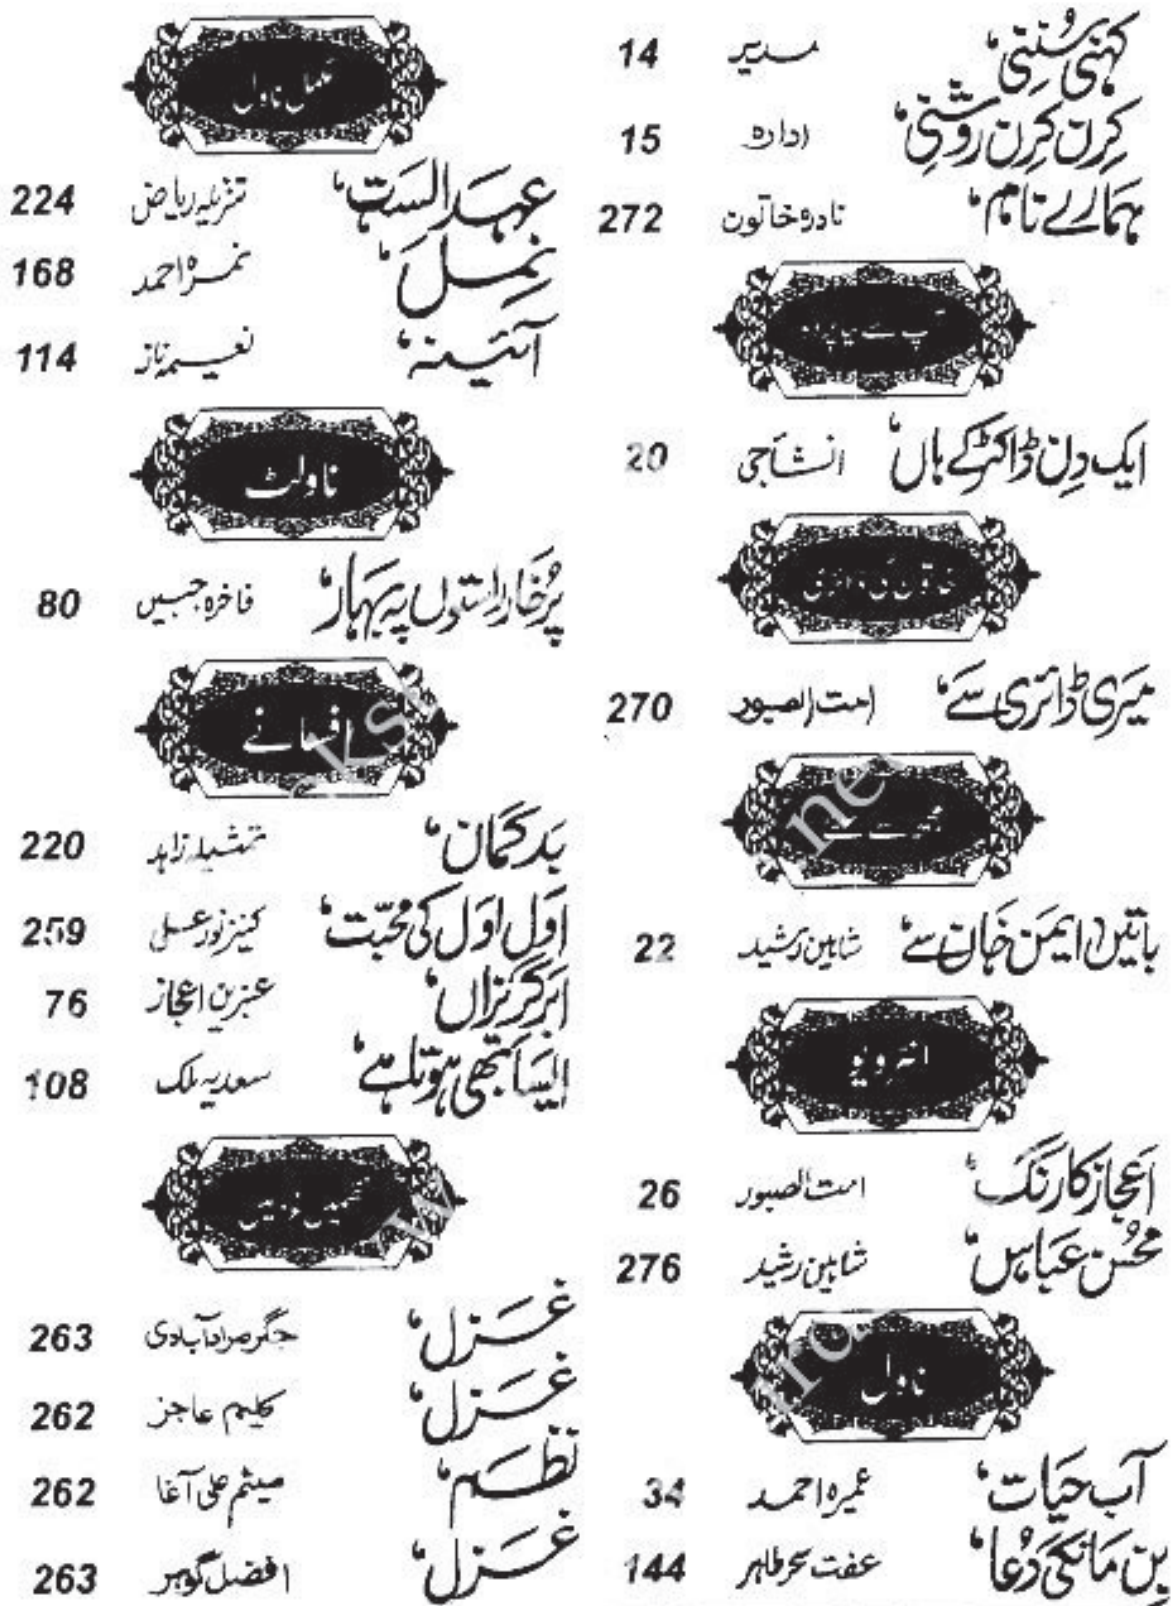 کہنی سُنتی، مدیر 14
کِرن کِرن روشنی، ادارہ 15
ہمارے نام، نادرہ خاتون 272
ایک دِن ڈاکٹر کے ہاں، انشاجی 20
میری ڈائری سے، امت الصبور 270
باتیں ایمن خان سے، شاہین رشید 22
انٹرویو
اعجاز کا رنگ، امت الصبور 26
محسُن عباس، شاہین رشید 276
ناول
آب حیات، عمیرہ احمد 34
بِن مانگی دُعا، عفت سحر طاہر 144
مکمل ناول
عہد الست، تنزیلہ ریاض 224
نمل، نمرہ احمد 168
آئینہ، نعیمہ ناز 114
ناولٹ
پُرخار راستوں پہ بہار، فاخرہ جبیں 80
افسانے
بدگمان، تمثیلہ زاہد 220
اول اول کی محبّت، کنیز نور علی 259
ابر گریزاں، عنبرین اعجاز 76
ایسا بھی ہوتا ہے، سعدیہ ملک 108
غزل، جگر مراد آبادی 263
غزل، کلیم عاجز 262
نظم، میثم علی آغا 262
غزل، افضل گوہر 263